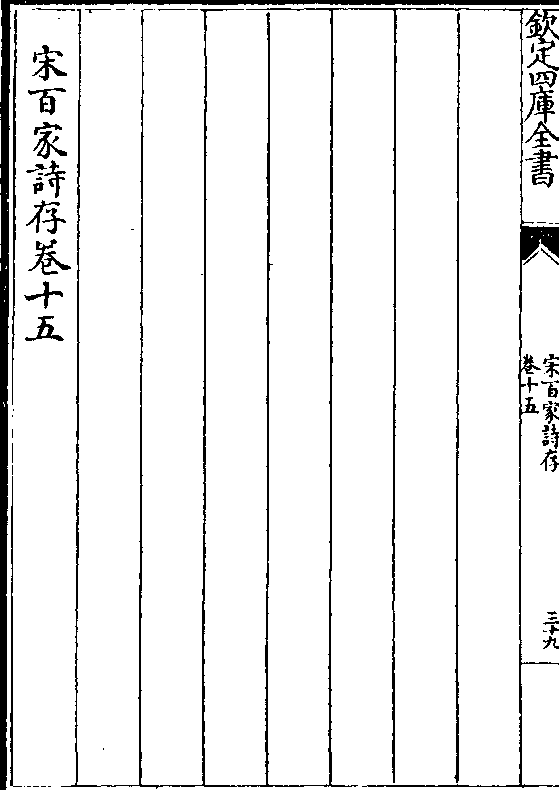 欽定四庫全書
宋百家詩存
卷十五
三十九
宋百家詩存卷十五